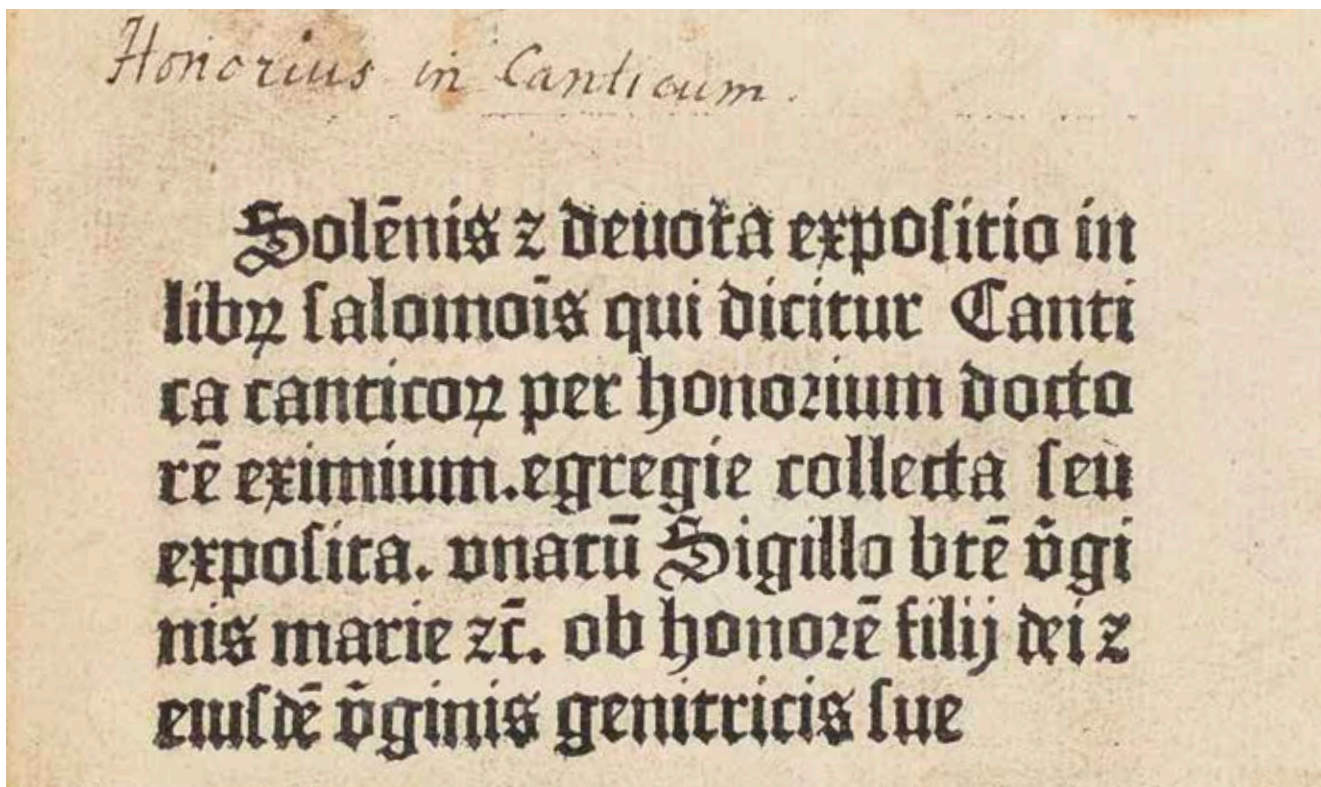 Honorius in Canticum.
Solēnis ⁊ deuota expoſitio in
libꝝ ſalomoīs qui dicitur Canti
ca canticoꝝ per honoꝛium docto
rē eximium.egregie collecta ſeu
expoſita. vnacū Sigillo btē v̄gi
nis marie ⁊c̄. ob honoꝛē filij dei ⁊
eiuſdē v̄ginis genitricis ſue